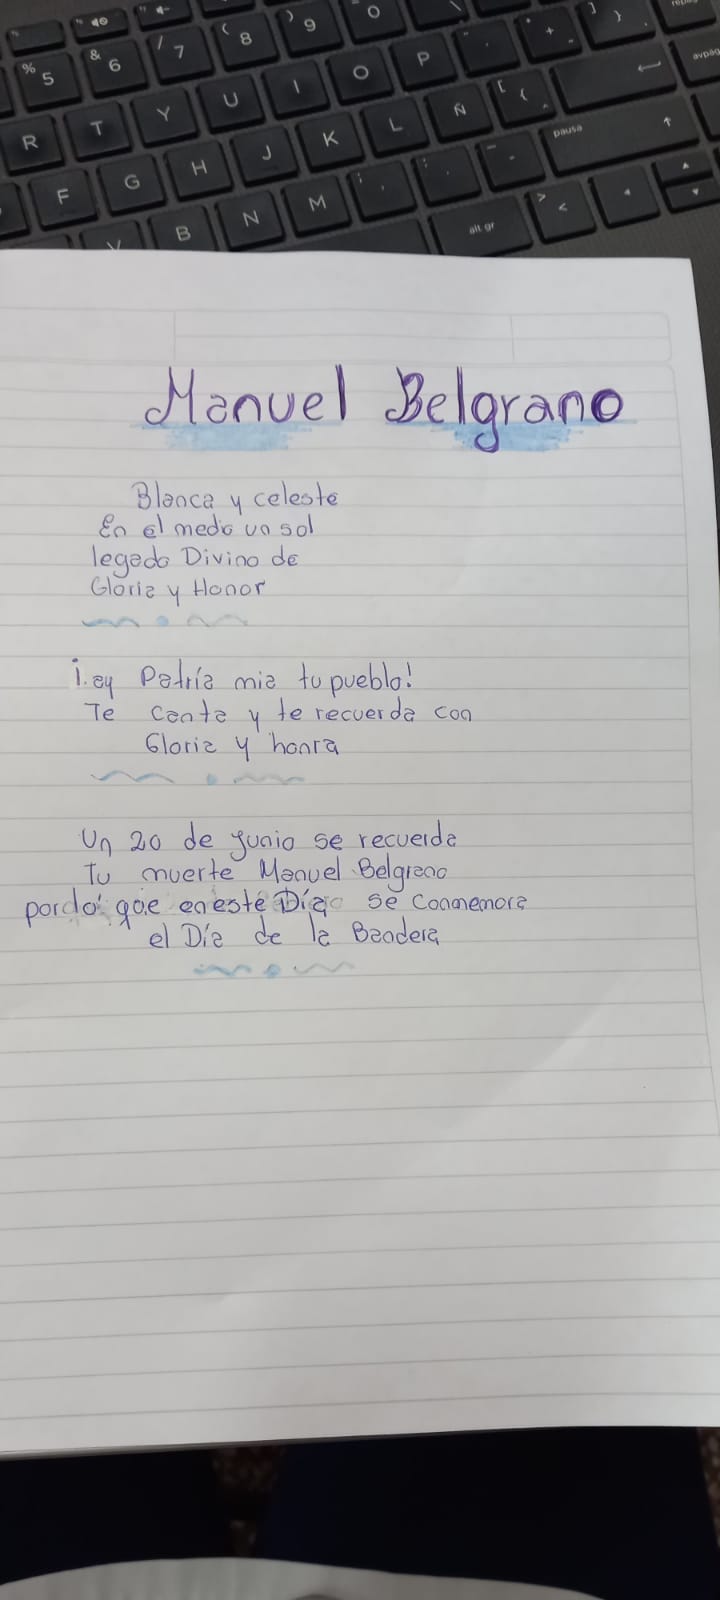 % 5
& 6
/ 7
( 8
) 9
O
R T Y U I O P
pausa
F G H J K L Ñ
B N M
alt gr
> <
Manuel Belgrano
Blanca y celeste
En el medio un sol
legado Divino de
Gloria y Honor
¡.ay Patría mia tu pueblo!
Te canta y te recuerda con
Gloria y honra
Un 20 de junio se recuerda
Tu muerte Manuel Belgrano
que en este Día se Conmemora
el Día de la Bandera